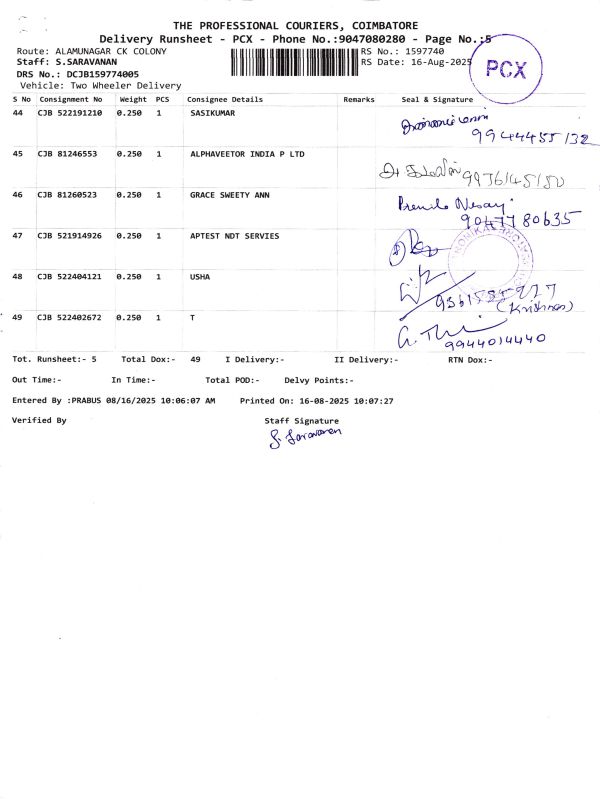 THE PROFESSIONAL COURIERS, COIMBATORE
Delivery Runsheet - PCX - Phone No.:9047080280 - Page No.:5
Route: ALAMUNAGAR CK COLONY
RS No.: 1597740
Staff: S.SARAVANAN
RS Date: 16-Aug-2025
PCX
DRS No.: DCJB159774005
Vehicle: Two Wheeler Delivery
S No Consignment No Weight PCS Consignee Details Remarks Seal & Signature
44 CJB 522191210 0.250 1 SASIKUMAR
9944455132
45 CJB 81246553 0.250 1 ALPHAVEETOR INDIA P LTD
9976145180
46 CJB 81260523 0.250 1 GRACE SWEETY ANN
9047780635
47 CJB 521914926 0.250 1 APTEST NDT SERVIES
48 CJB 522404121 0.250 1 USHA
(Krishnas)
49 CJB 522402672 0.250 1 T
9944014440
Tot. Runsheet:- 5 Total Dox:- 49 I Delivery:- II Delivery:- RTN Dox:-
Out Time:- In Time:- Total POD:- Delvy Points:-
Entered By :PRABUS 08/16/2025 10:06:07 AM Printed On: 16-08-2025 10:07:27
Verified By Staff Signature
S. Saravanan